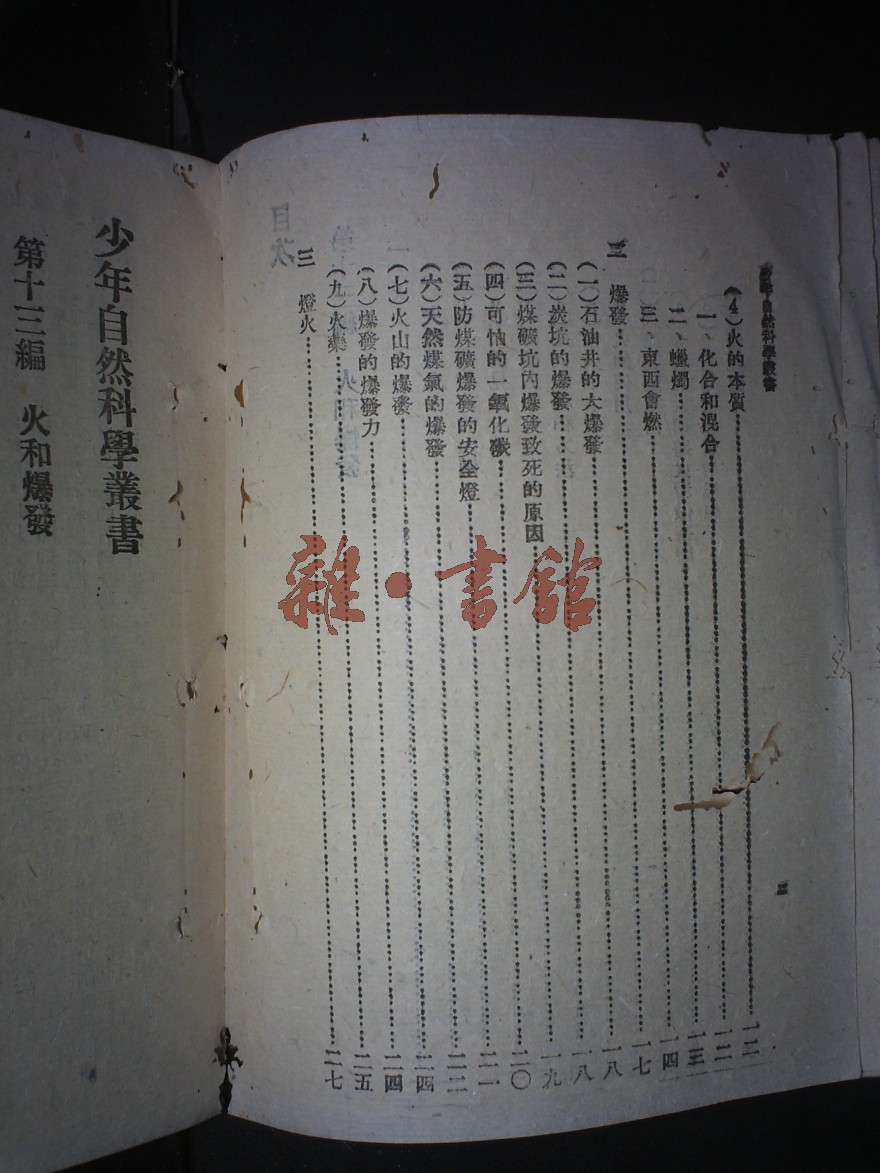 少年自然科學叢書
(4)火的本質…一二
一、化合和混合…一二
二、蠟燭…一三
三、東西會燃…一四
二 爆發…一七
(一)石油井的大爆發…一八
(二)炭坑的爆發…一八
(三)煤礦坑內爆發致死的原因…一九
(四)可怕的一氧化碳…二〇
(五)防煤礦爆發的安全燈…二一
(六)天然煤氣的爆發…二二
(七)火山的爆發…二四
(八)爆發的爆發力…二四
(九)火藥…二五
三 燈火…二七
二
少年自然科學叢書
第十三編 火和爆發
目次
雜·書館